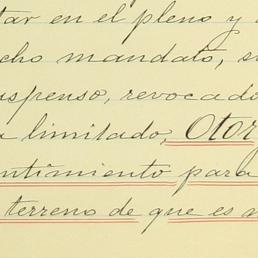 tar en el pleno y
cho mandato, s
uspenso, revocado
a limitado, Otor
ntimiento para
terreno de que es